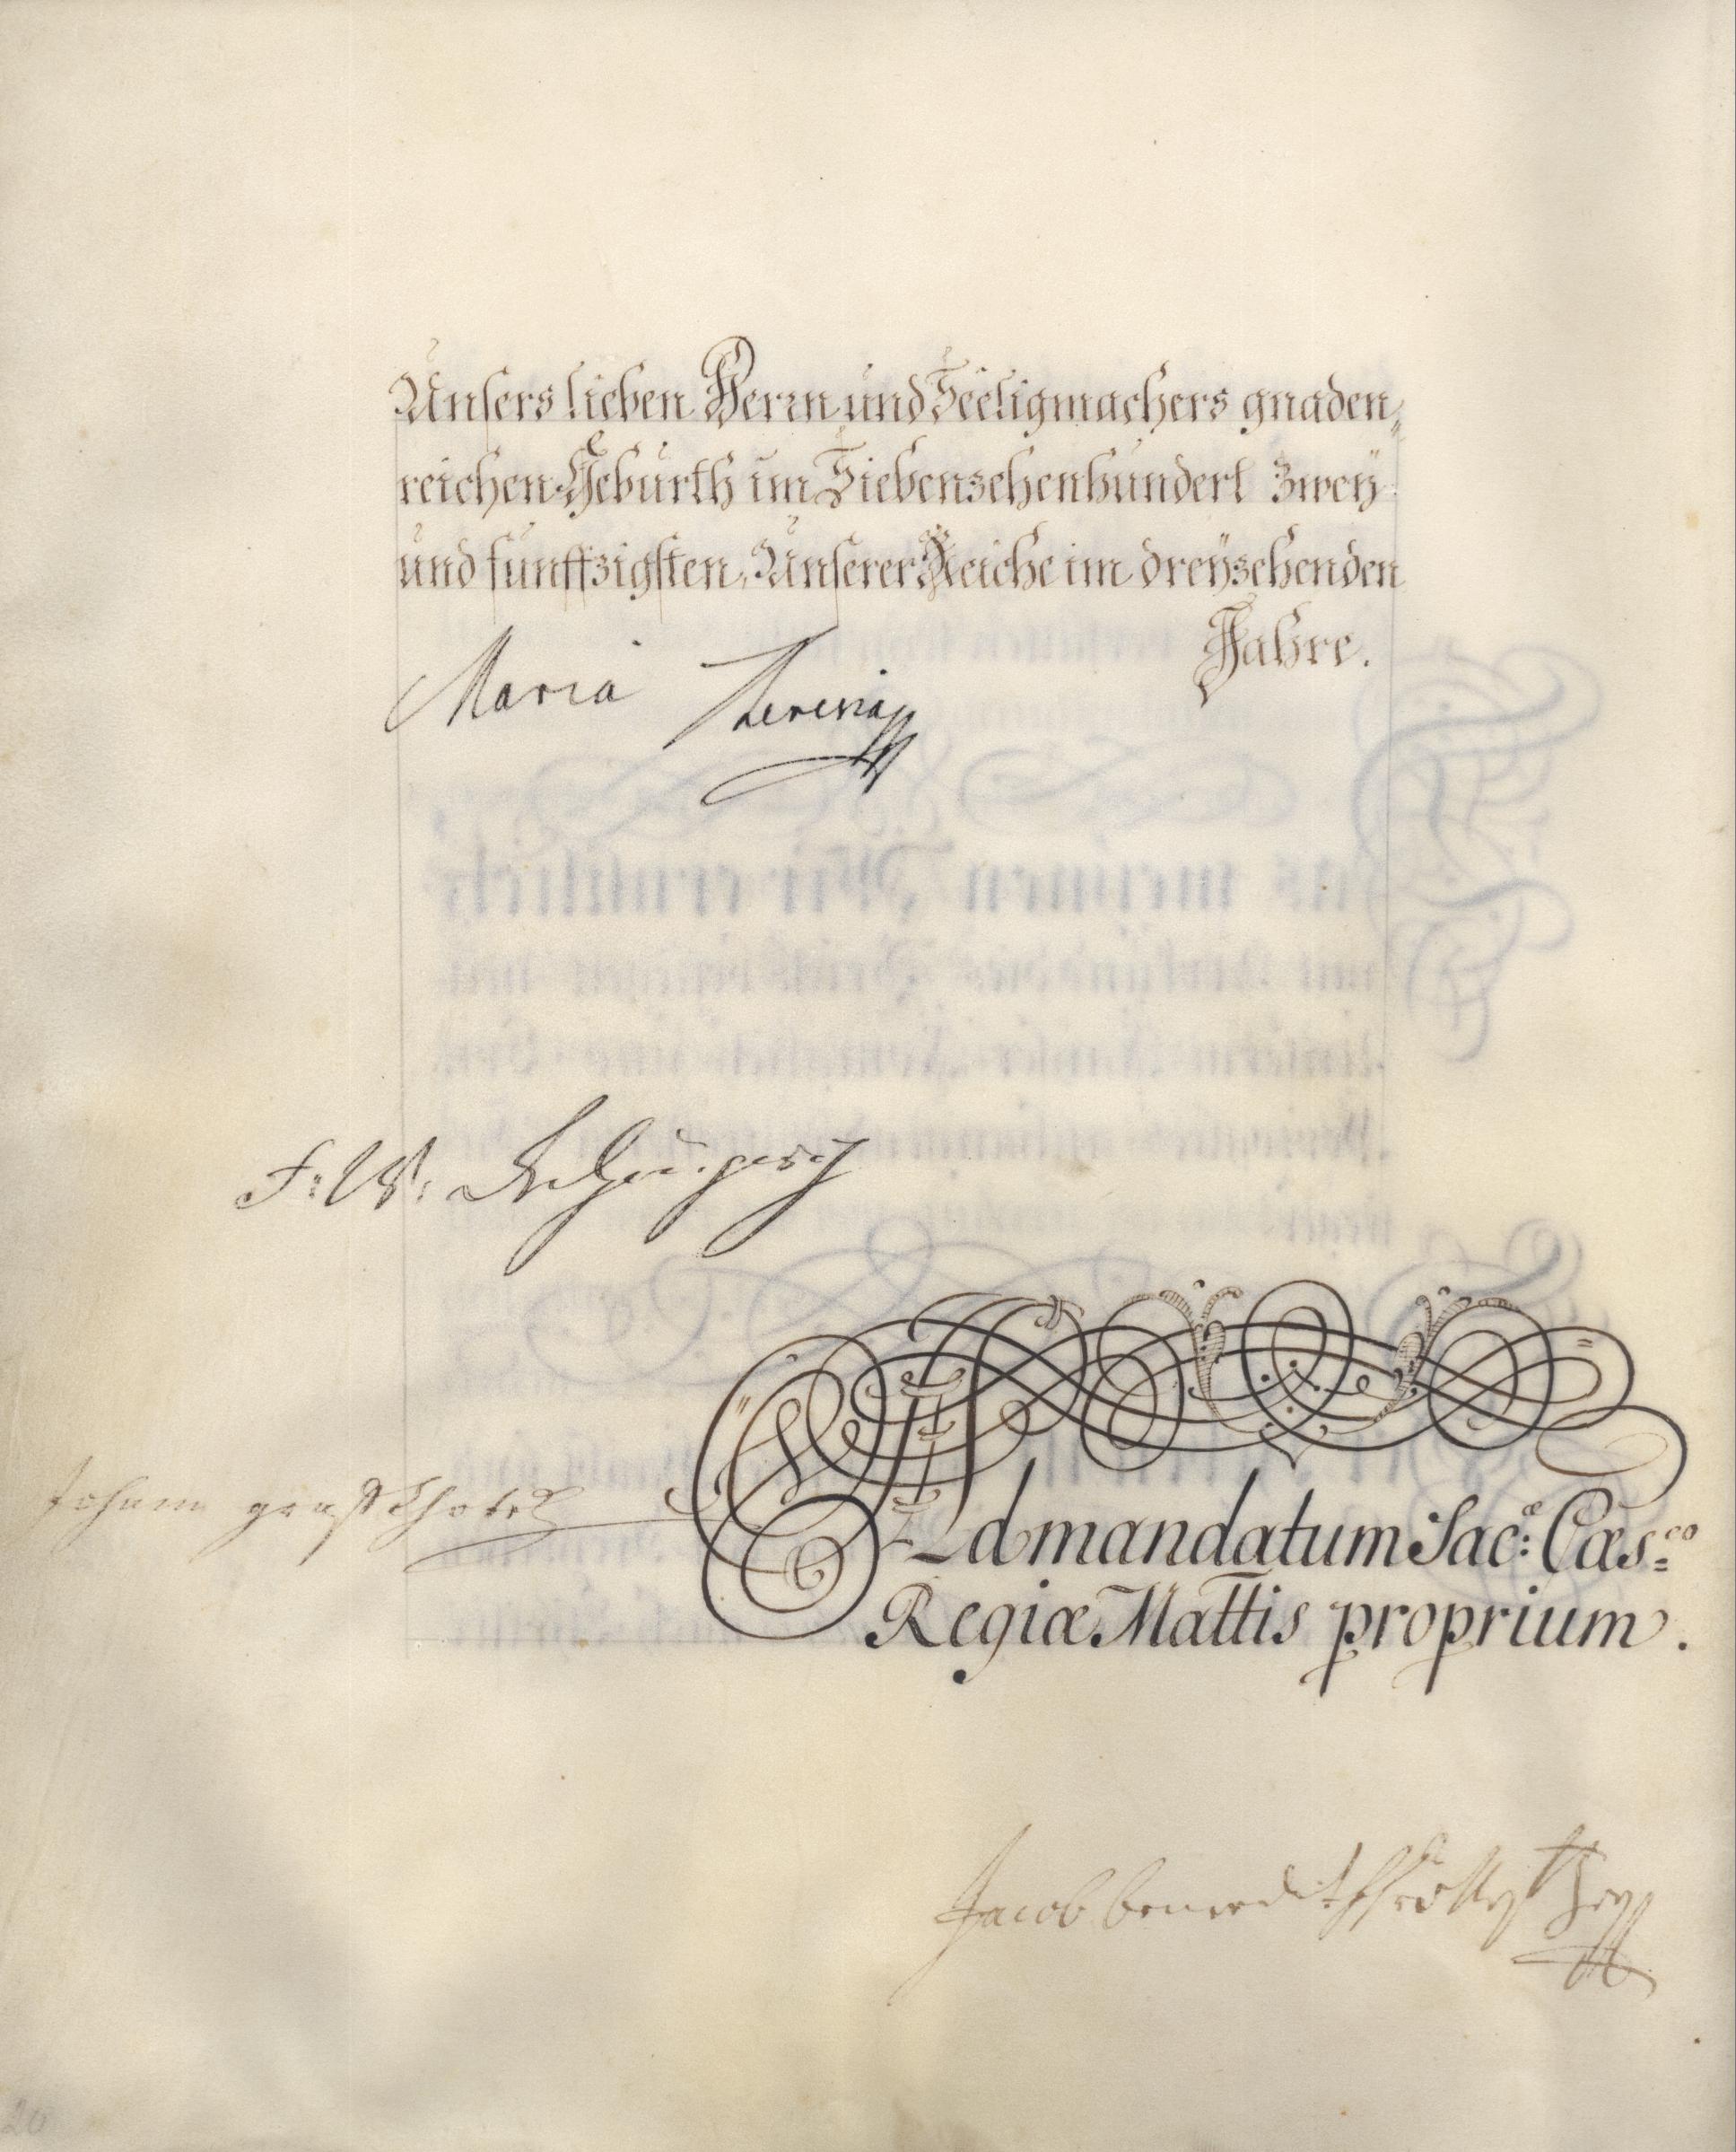 Unsers lieben Herrn und Seeligmachers gnaden„
reichen Geburth im Siebenzehenhundert zwey
und funffzigsten, Unserer Reiche im dreyzehenden
Jahre.
Maria Theresia
F: W: Haugwitz
Johann graff Chotek
Ad mandatum Sac:æ Cæs:eo
Regiæ Mattis proprium.
Jacob benedict
20